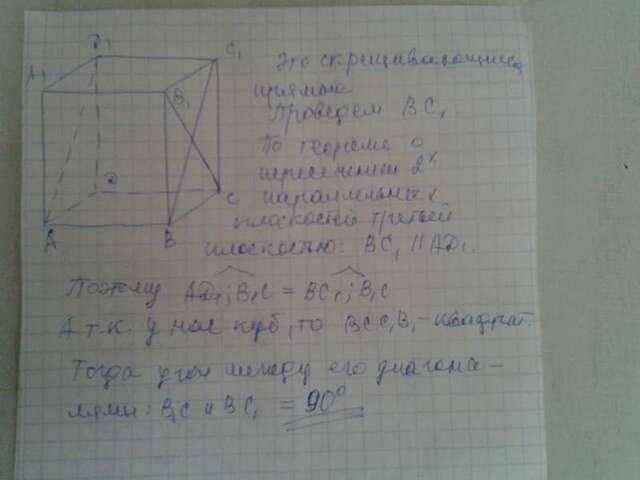 D₁
C₁
A₁
B₁
D
C
A
B
Это скрещивающиеся
прямые
Проведем BC₁.
По теореме о
пересечении 2ˣ
параллельных
плоскостей третьей
плоскостью: BC₁ || AD₁.
Поэтому AD₁; B₁C = BC₁; B₁C
А т.к. у нас куб, то BCC₁B₁ - квадрат.
Тогда угол между его диагона-
лями: B₁C и BC₁ = 90°